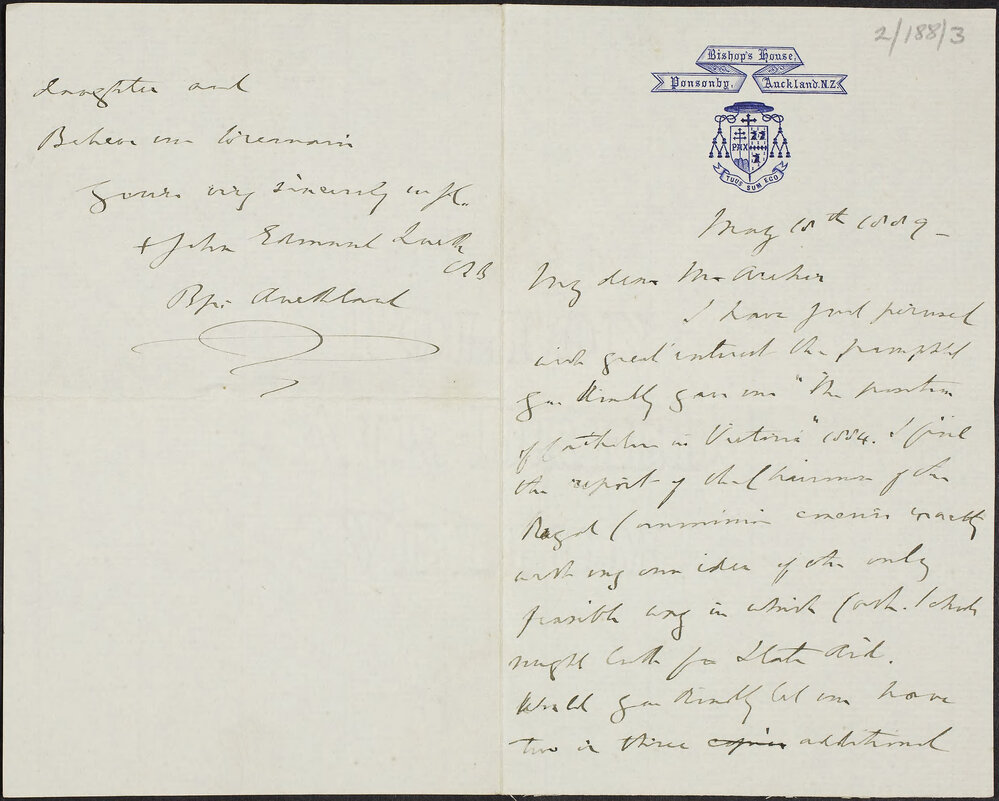 2/188/3
Bishop's House,
Ponsonby, Auckland. N.Z.
PAX
TUUS SUM EGO
May 18th 1889 -
My dear Mr Archer
I have just perused
with great interest the pamphlet
you kindly gave me "The position
of Catholics in Victoria" 1884. I find
the report of the Chairman of the
Royal Commission exactly
with my own idea of the only
feasible way in which Cath. Schools
might look for State Aid.
Would you kindly let me have
two or three copies additional
daughter and
Believe me to remain
Yours very sincerely in Xt.
+ John Edmund Luck
OSB
Bp. Auckland